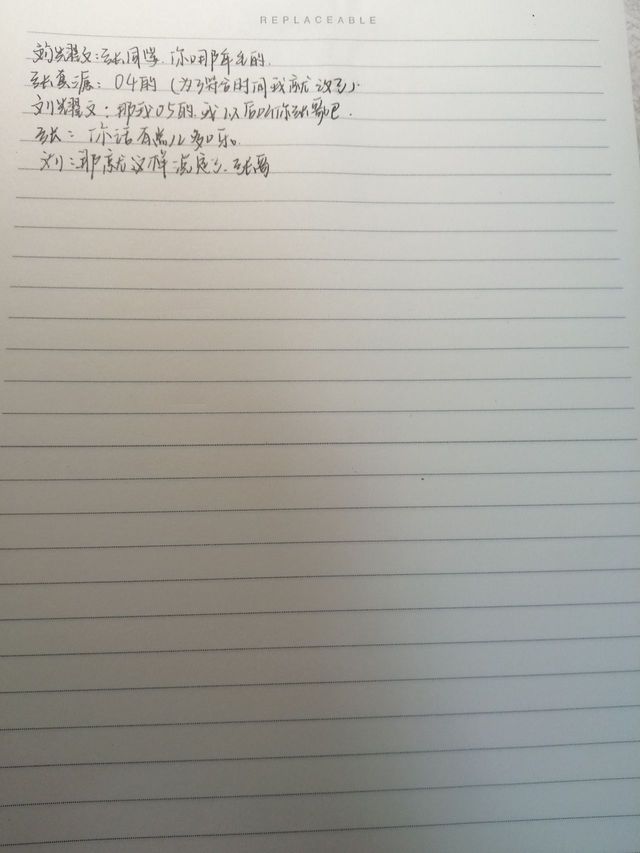 REPLACEABLE
刘耀文：张同学，你哪年的.
张真源：04的（为了符合时间我就改了）.
刘耀文：那我05的，我以后叫你张哥吧.
张：你话有点儿多日乐。
刘：那就这样说定了，张哥